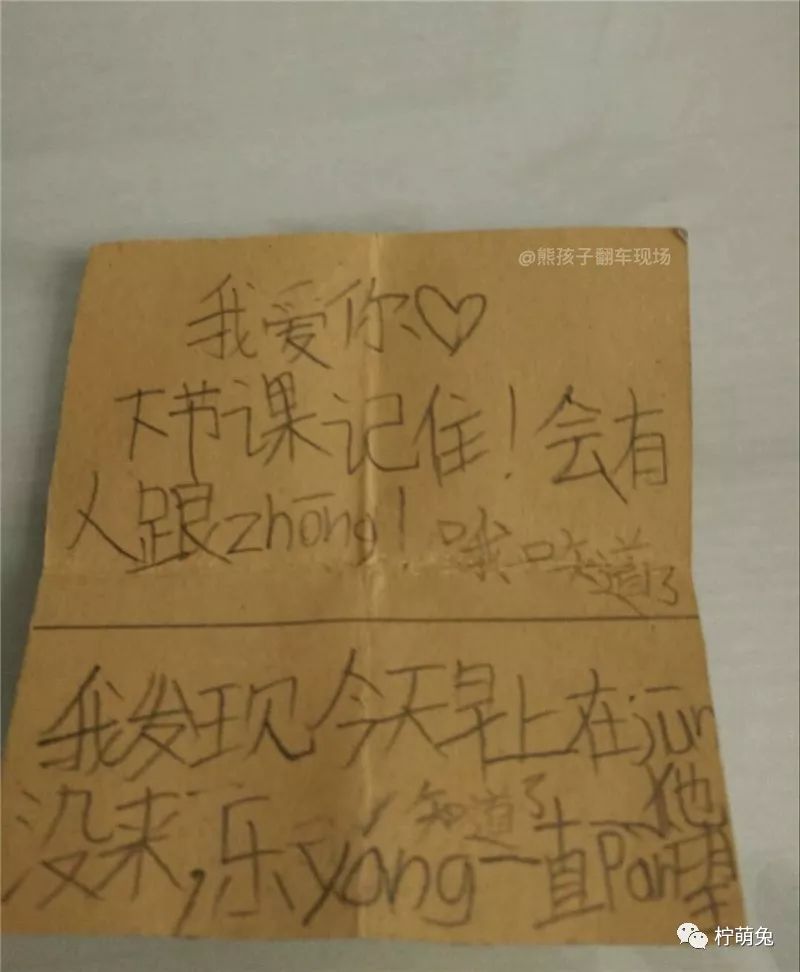 @熊孩子翻车现场
我爱你♡
下节课记住!会有
人跟zhōng!
哦知道了
我发现今天早上在jūn
没来,乐yáng一直pàn望
他
知道了
柠萌兔